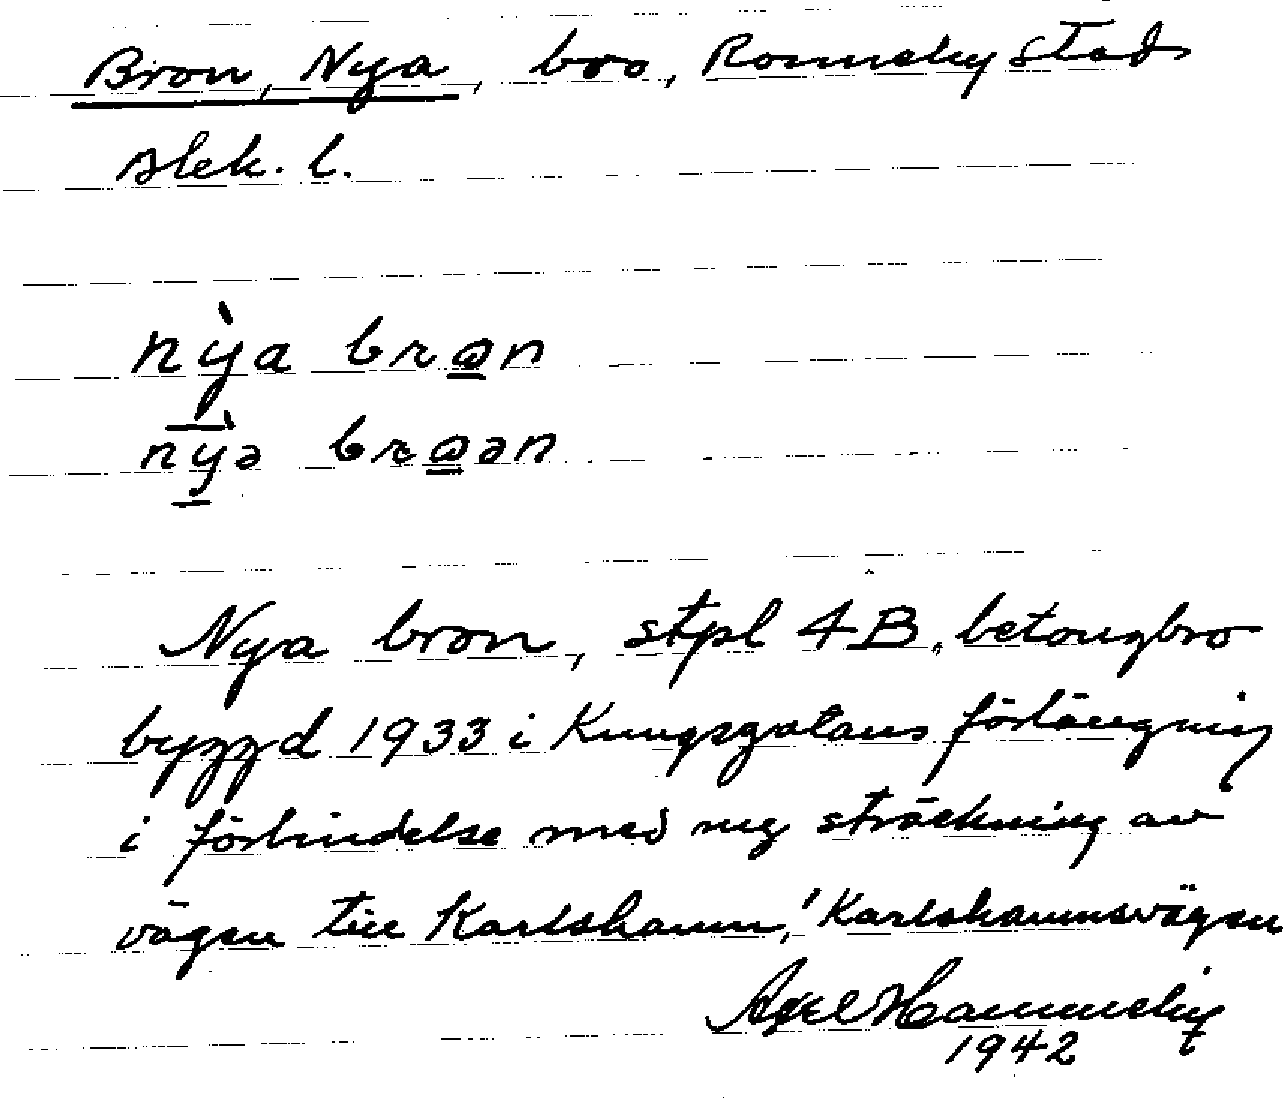 Bron, Nya, bro, Ronneby stad
Blek. l.
nỳa bron
nỳə broən
Nya bron, stpl 4B, betongbro
byggd 1933 i Kungsgatans förlängning
i förbindelse med ny sträckning av
vägen till Karlshamn, Karlshamnsvägen
Axel Hammneby
1942